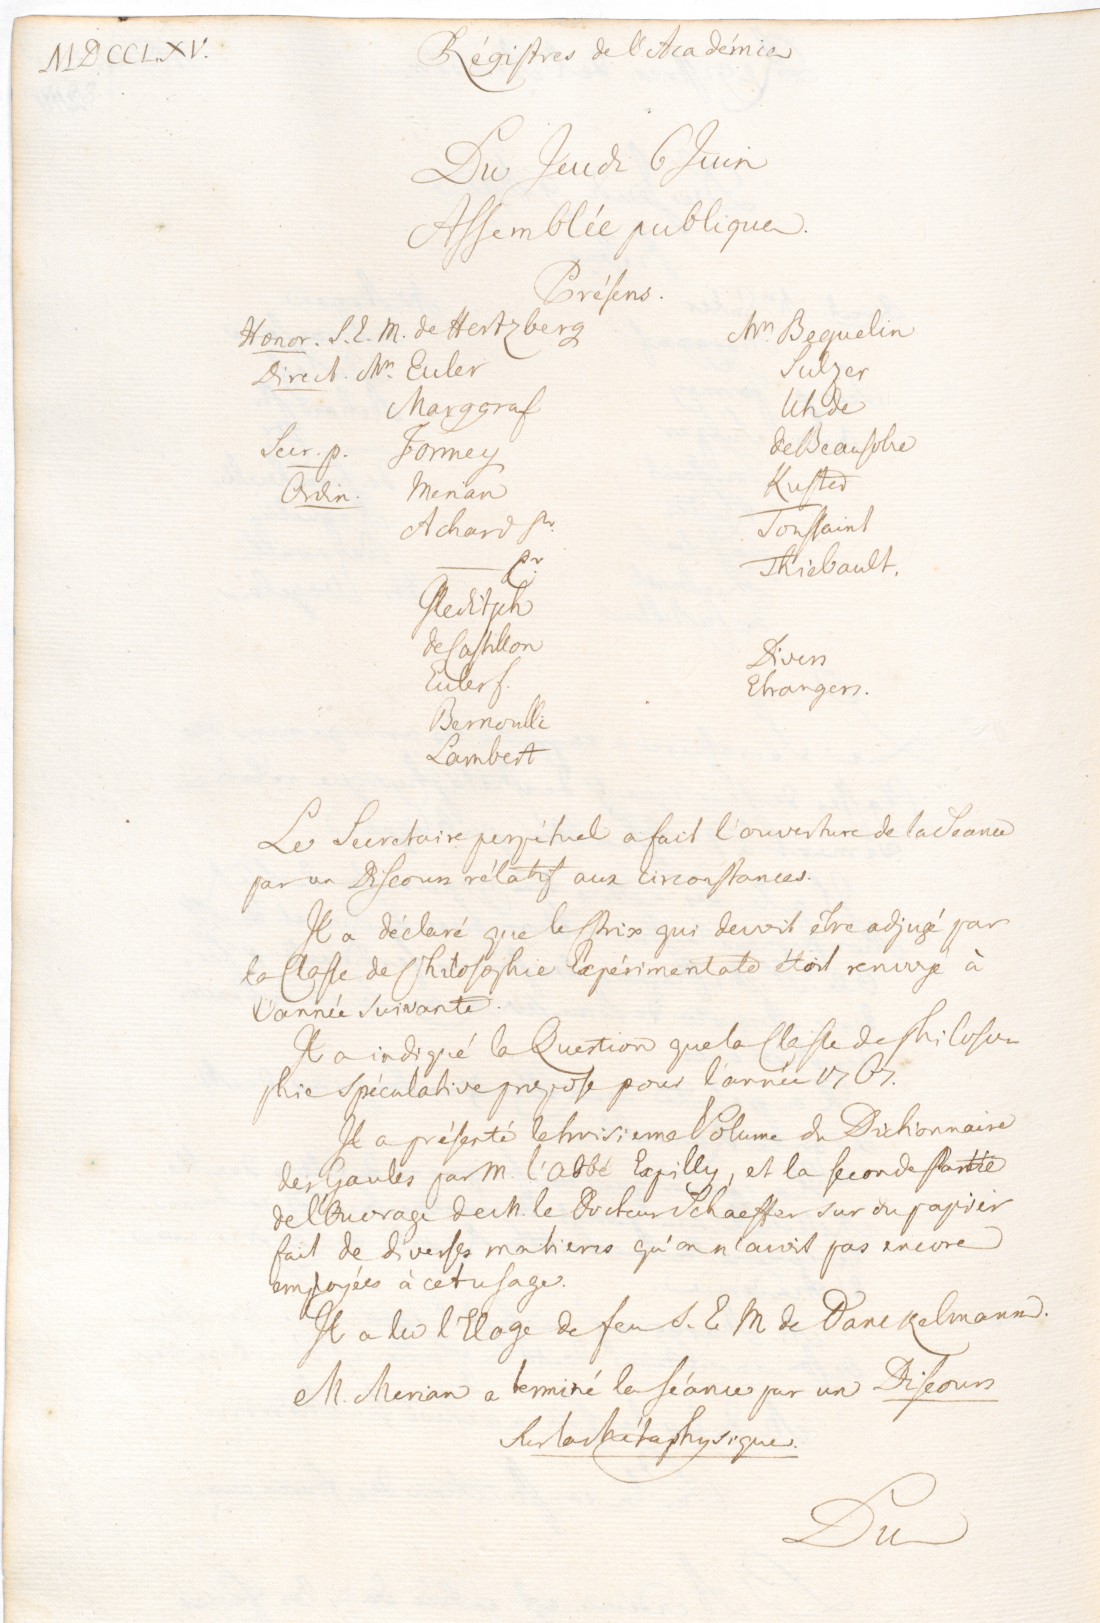 MDCCLXV.
Régistres de l'Académie
Du Jeudi 6 Juin
Assemblée publique.
Présens.
Honor. S. E. M. de Hertzberg
Direct. Mrs. Euler
Marggraf
Secr. p. Formey
Ordin. Merian
Achard Sr.
——— Pr.
Gleditsch
de Castillon
Euler f.
Bernoulli
Lambert
Mrs. Beguelin
Sulzer
Uhde
de Beausobre
Kuster
Toussaint
Thiebault.
Divers
Etrangers.
Le Secretaire perpétuel a fait l'ouverture de la Séance
par un Discours rélatif aux circonstances.
Il a déclaré que le Prix qui devoit être adjugé par
la Classe de Philosophie Expérimentale étoit renvoyé à
l'année suivante.
Il a indiqué la Question que la Classe de Philoso-
phie spéculative propose pour l'année 1767.
Il a présenté le troisieme Volume du Dictionnaire
des Gaules par M. l'Abbé Expilly, et la seconde Partie
de l'Ouvrage de M. le Docteur Schaeffer sur du papier
fait de diverses matieres qu'on n'avoit pas encore
employées à cet usage.
Il a lu l'Eloge de feu S. E. M. de Danckelmann.
M. Merian a terminé la séance par un Discours
sur la Métaphysique.
Du